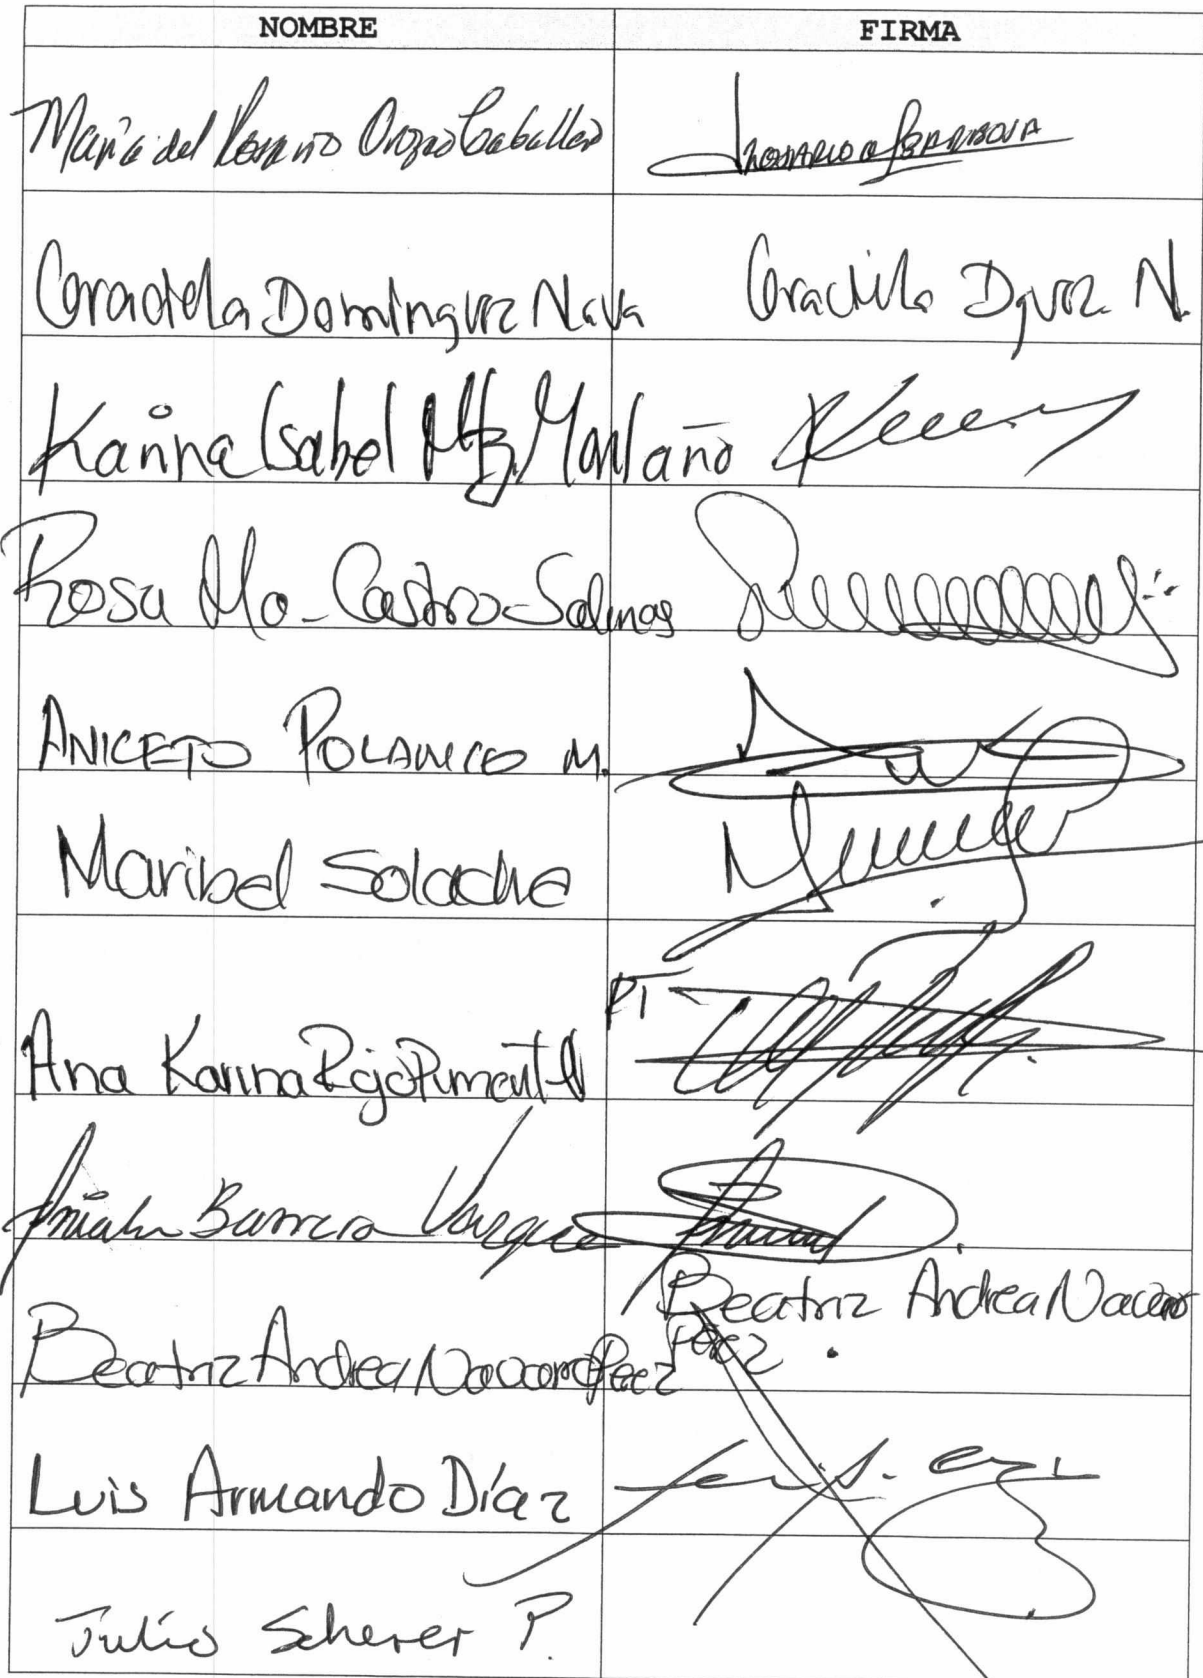 NOMBRE FIRMA
María del Rosario Orozco Caballero
Graciela Domínguez Nava Graciela Dguez. N.
Karina Isabel Mtz. Montaño
Rosa Ma. Castro Salinas
ANICETO POLANCO M.
Maribel Solache
PT
Ana Karina Rojo Pimentel
Barrera
Beatriz Andrea Navarro
Beatriz Andrea Navarro Perez Pérez
Luis Armando Díaz
Julio Scherer P.